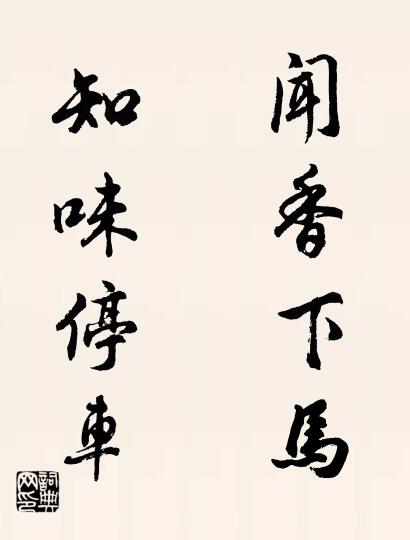 聞香下馬
知味停車
詞典网印